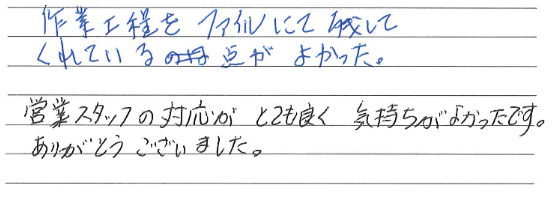 作業工程をファイルにて残して
くれている点がよかった。
営業スタッフの対応がとても良く 気持ちがよかったです。
ありがとうございました。